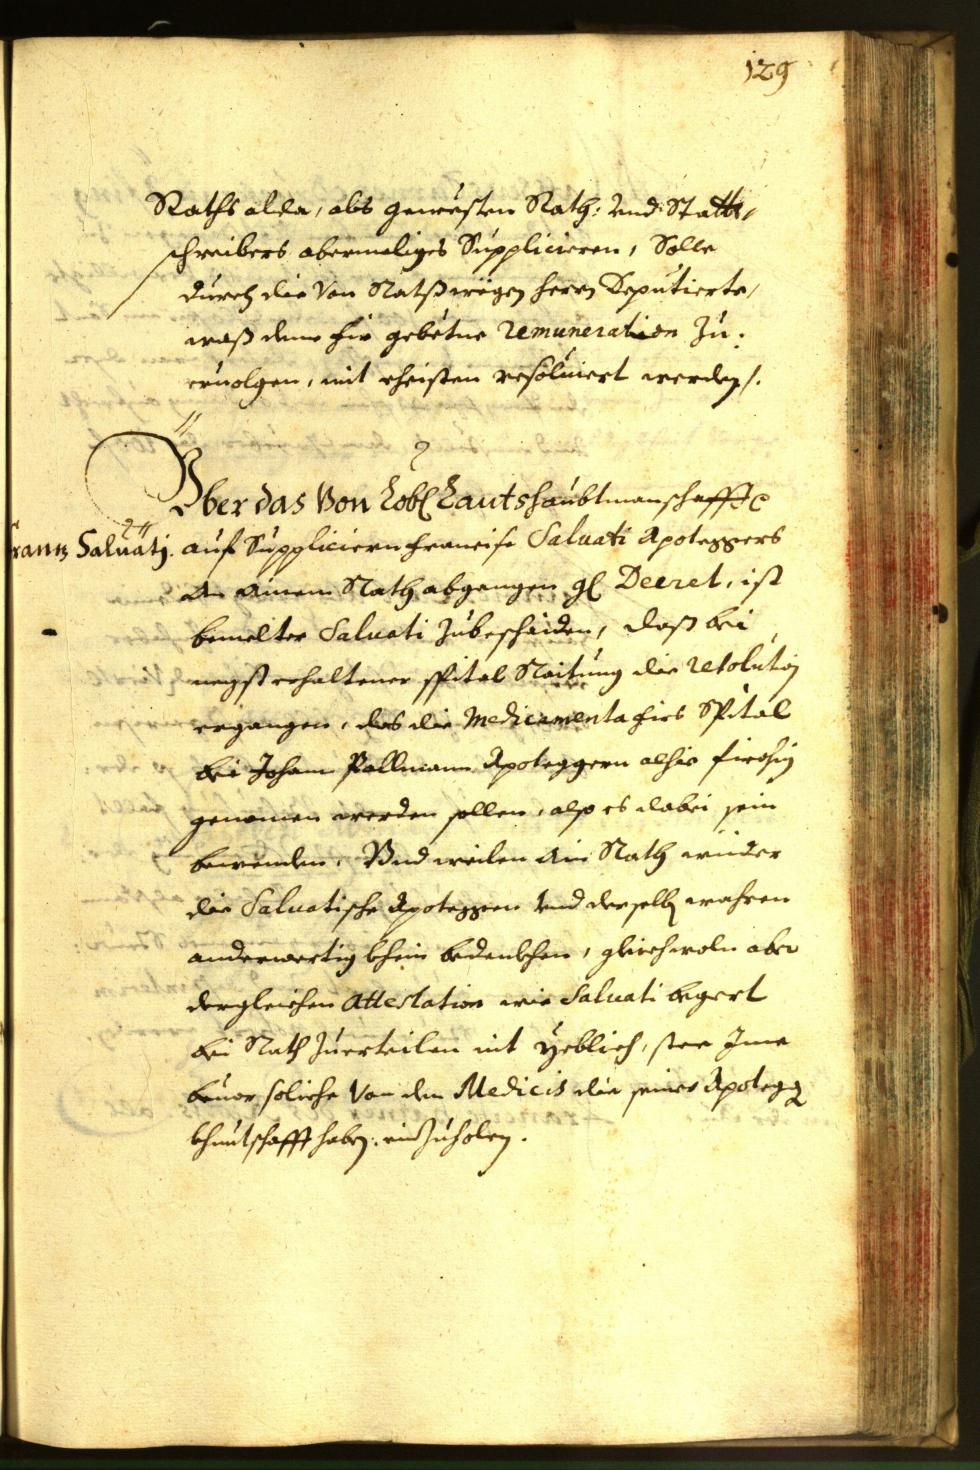 129
Raths alda, als gewesten Rath: Vnd Statt,
schreibers abermaliges Supplicieren, Solle
durch die Von Ratßwegen herrn Deputierte,
waß deme hir gebetne remuneration Zu.
ervolgen, mit ehisten resoluiert werden /.
2
Vber das Von Lobl Landtshaubtmanschafft
Frantz Saluatj. auf Suppliciern Francisc Saluati Apoteggers
An Ainem Rath abgangen gl Decret, ist
bemelter Saluati Zubeschaiden, daß bei
negst erhaltener Spital Raitung die resolution
ergangen, das die Medicamenta firs Spital
bei Johann Pallmann Apoteggern alhie firohin
genomen werden sollen, also es dabei sein
bewenden, Vnd weilen Ain Rath wider
die Saluatische Apoteggen Vnd derselben wahren
anderwertig khein bedenkhen, gleichwoln aber
dergleichen Attestation wie Saluati begert
bei Rath Zuerteilen nit yeblich, stee Ime
beuor soliche Von den Medicis die seiner Apotegg
khuntschafft haben, einZuholen.